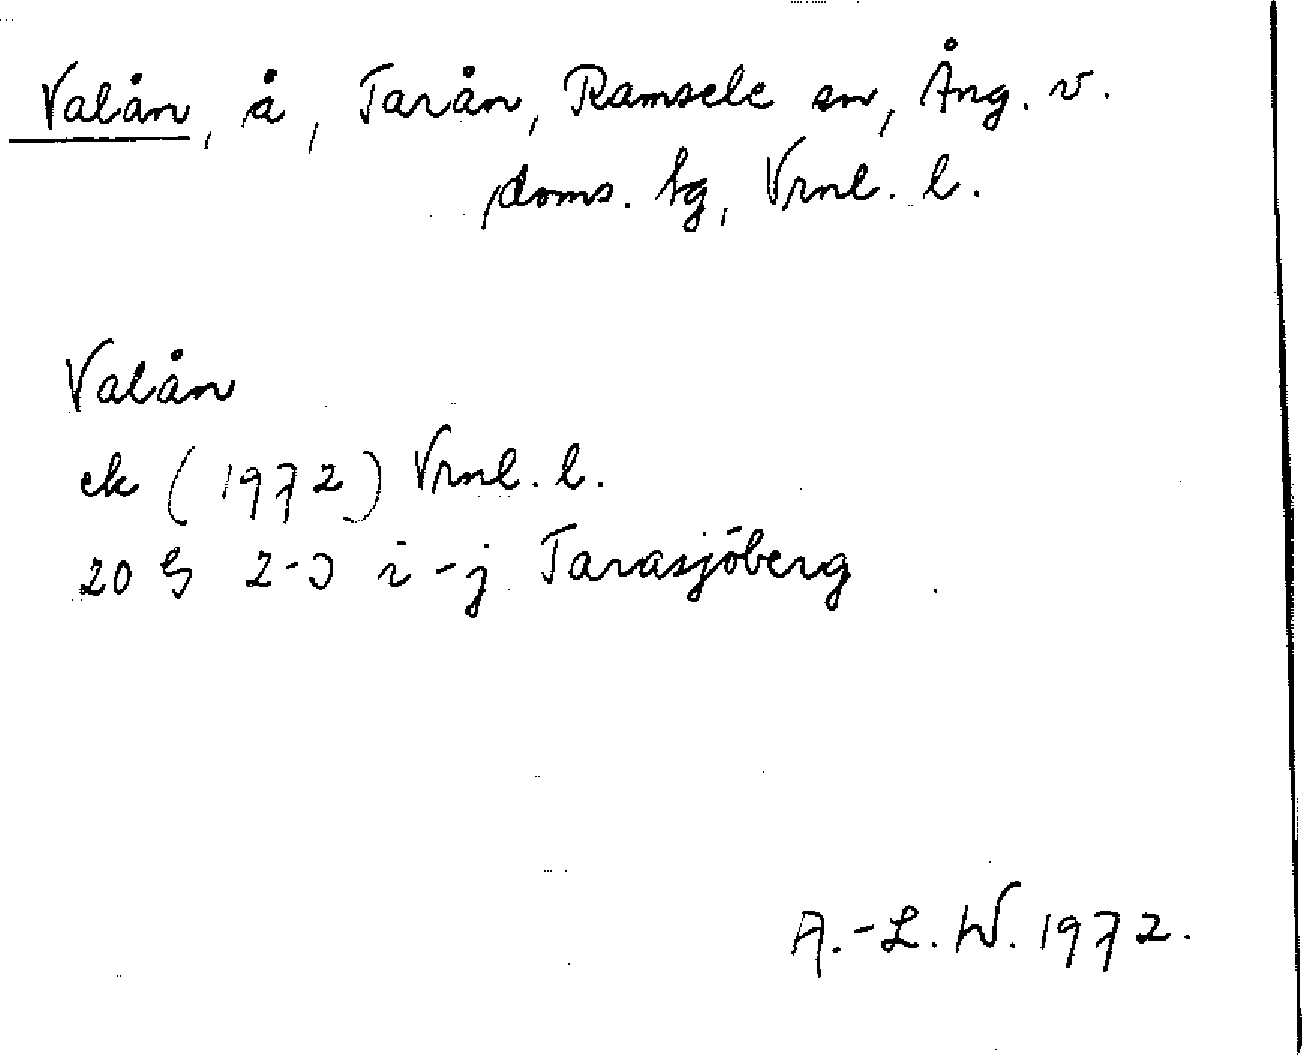 Valån, å, Tarån, Ramsele sn, Ång. v.
doms. tg, Vrnl. l.
Valån
ek (1972) Vrnl. l.
20 G 2-3 i-j Tarasjöberg
A.-L. W. 1972.